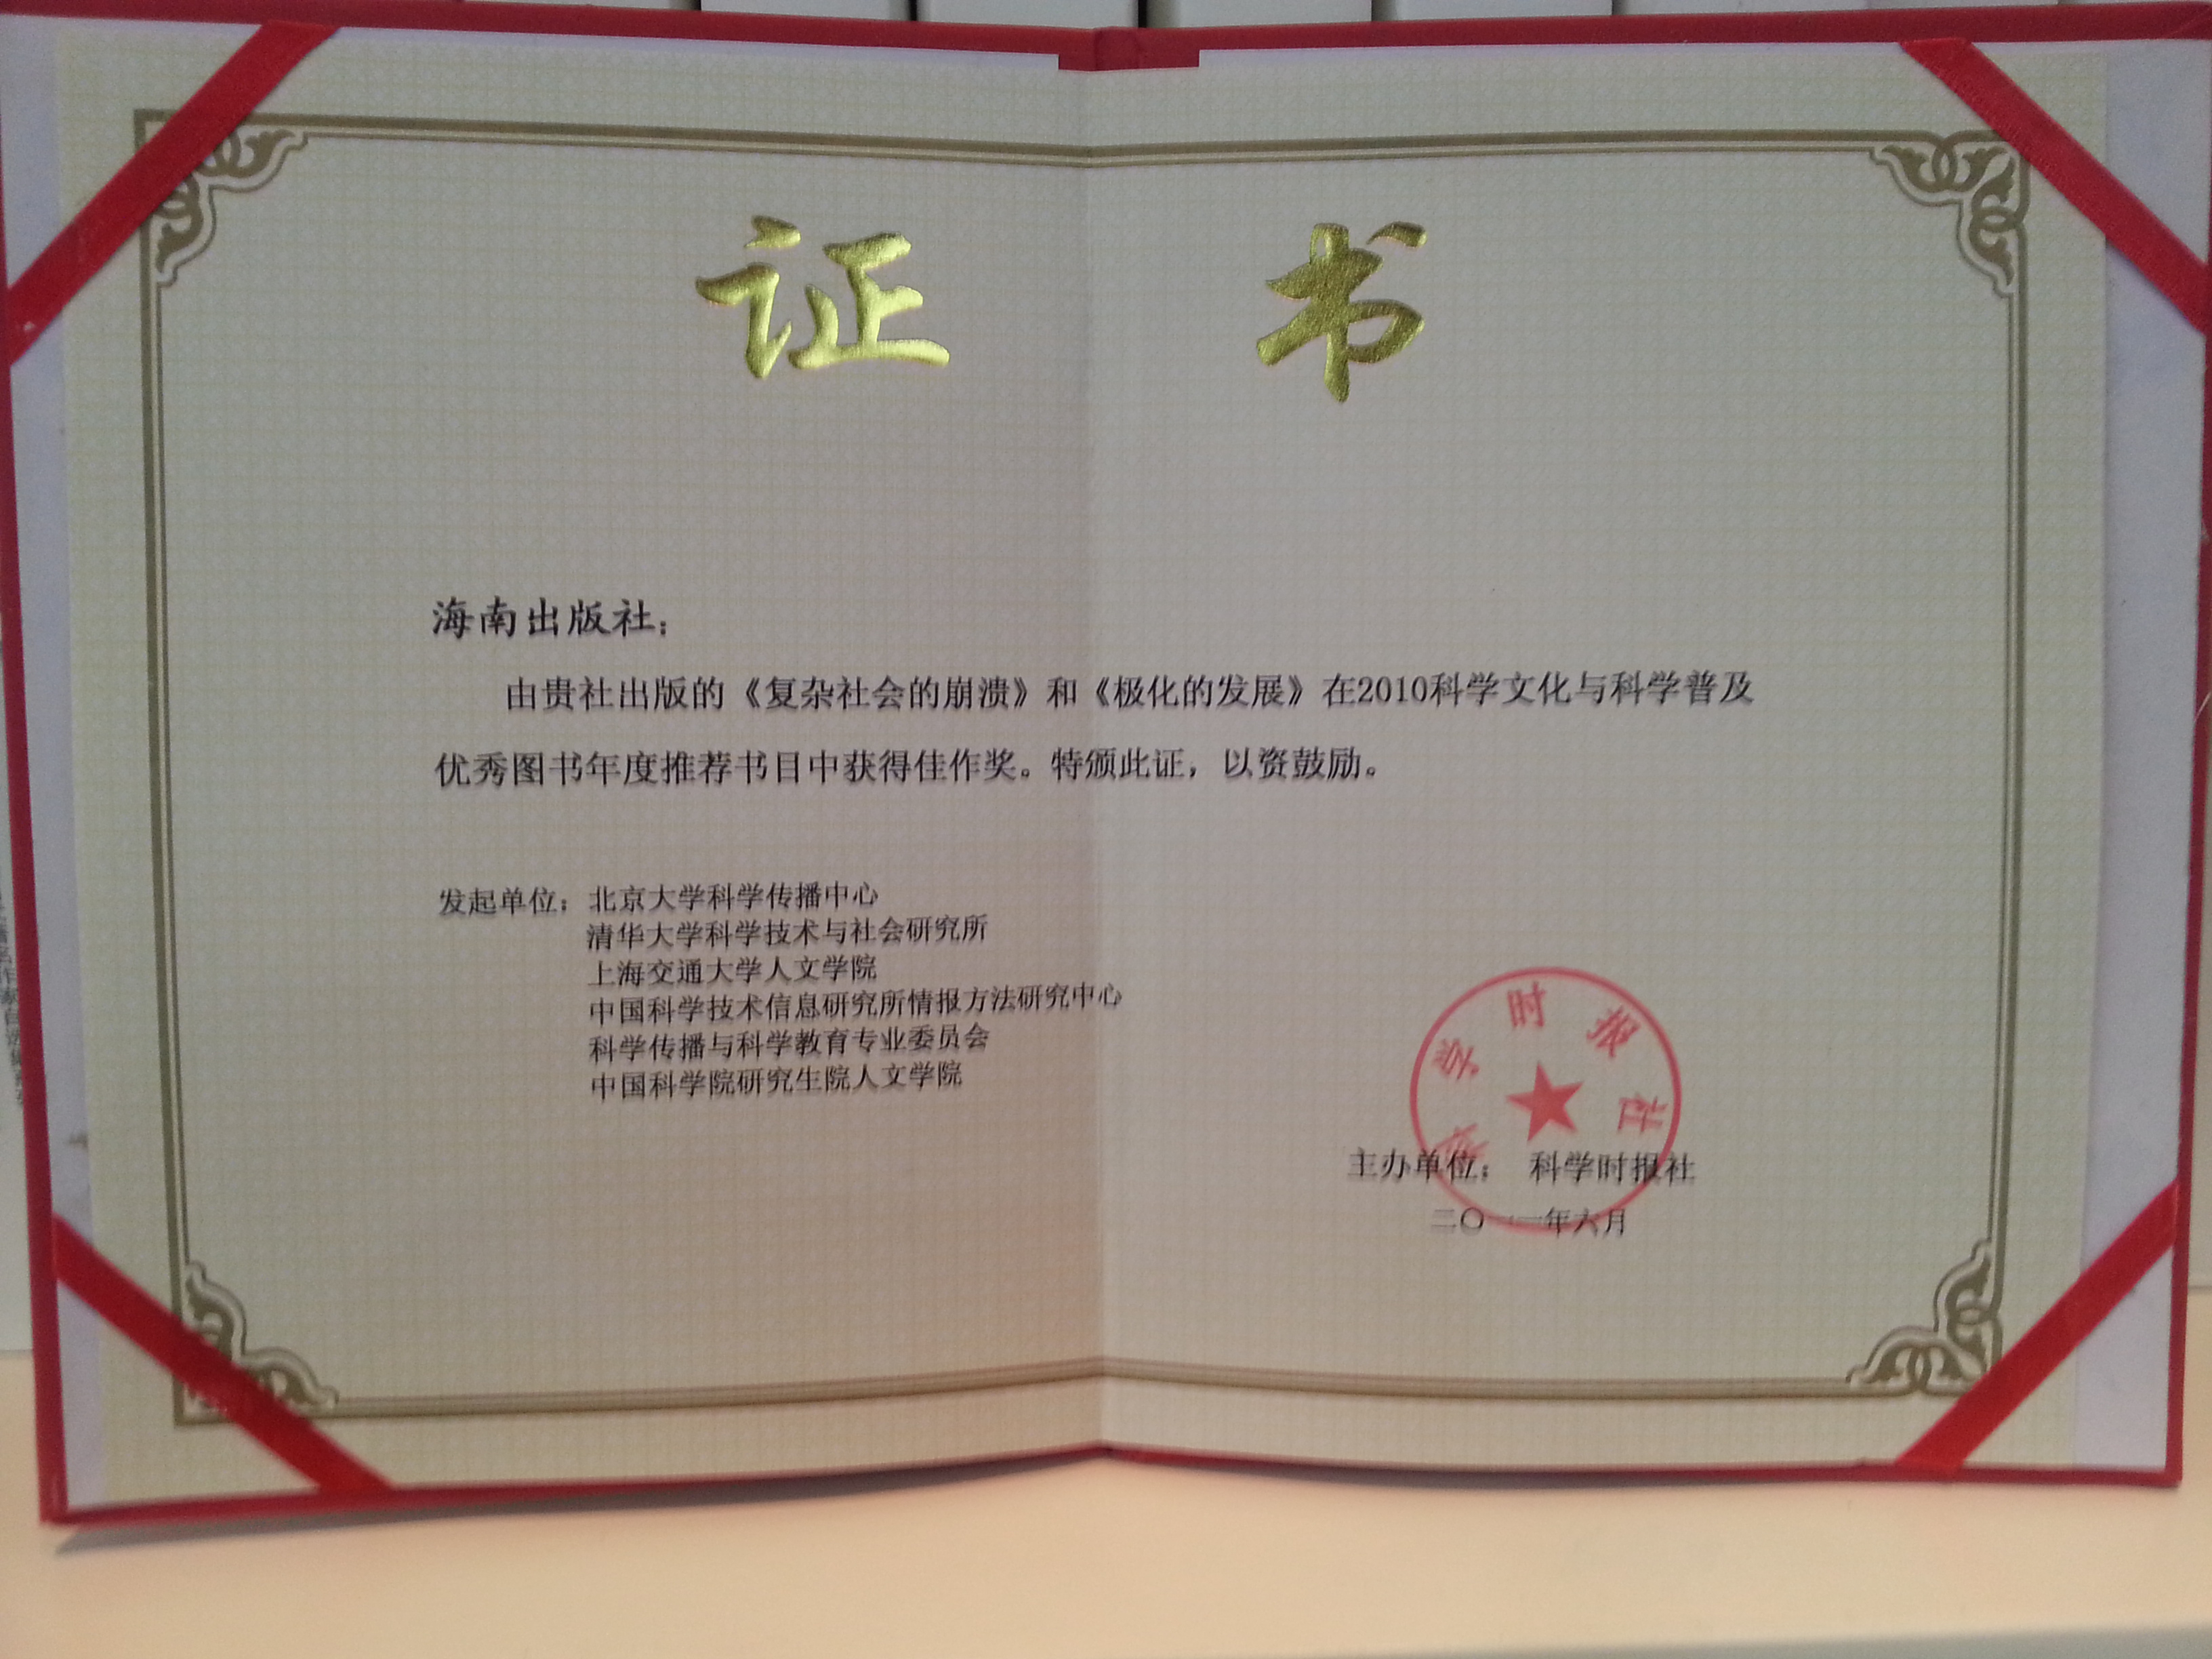 证 书
海南出版社：
由贵社出版的《复杂社会的崩溃》和《极化的发展》在2010科学文化与科学普及
优秀图书年度推荐书目中获得佳作奖。特颁此证，以资鼓励。
发起单位：北京大学科学传播中心
清华大学科学技术与社会研究所
上海交通大学人文学院
中国科学技术信息研究所情报方法研究中心
科学传播与科学教育专业委员会
中国科学院研究生院人文学院
科学时报社
主办单位： 科学时报社
二〇一一年六月